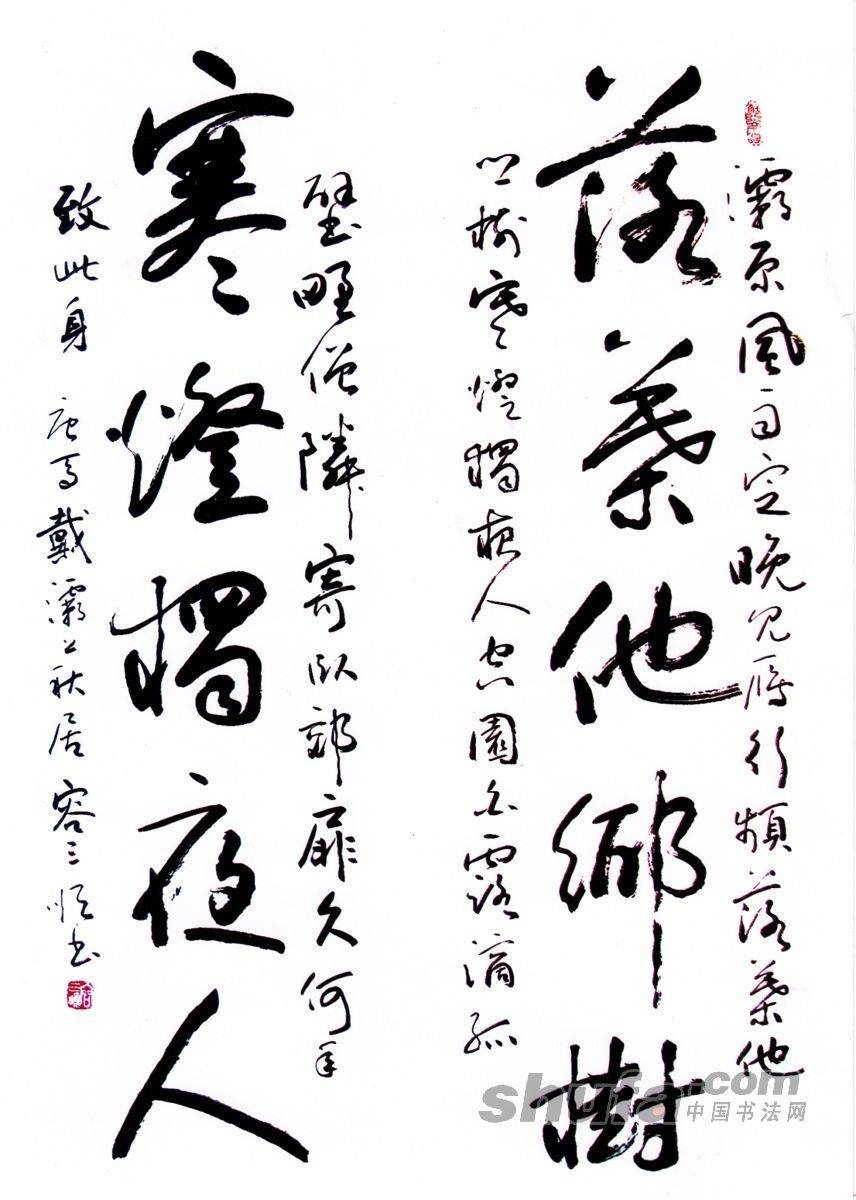 灞原風雨定晚見雁行頻落葉他
落葉他鄉樹
鄉樹寒燈獨夜人空園白露滴孤
壁野僧隣寄臥郊扉久何年
寒燈獨夜人
致此身 唐馬戴灞上秋居 容三順書
shufa.com
中国书法网